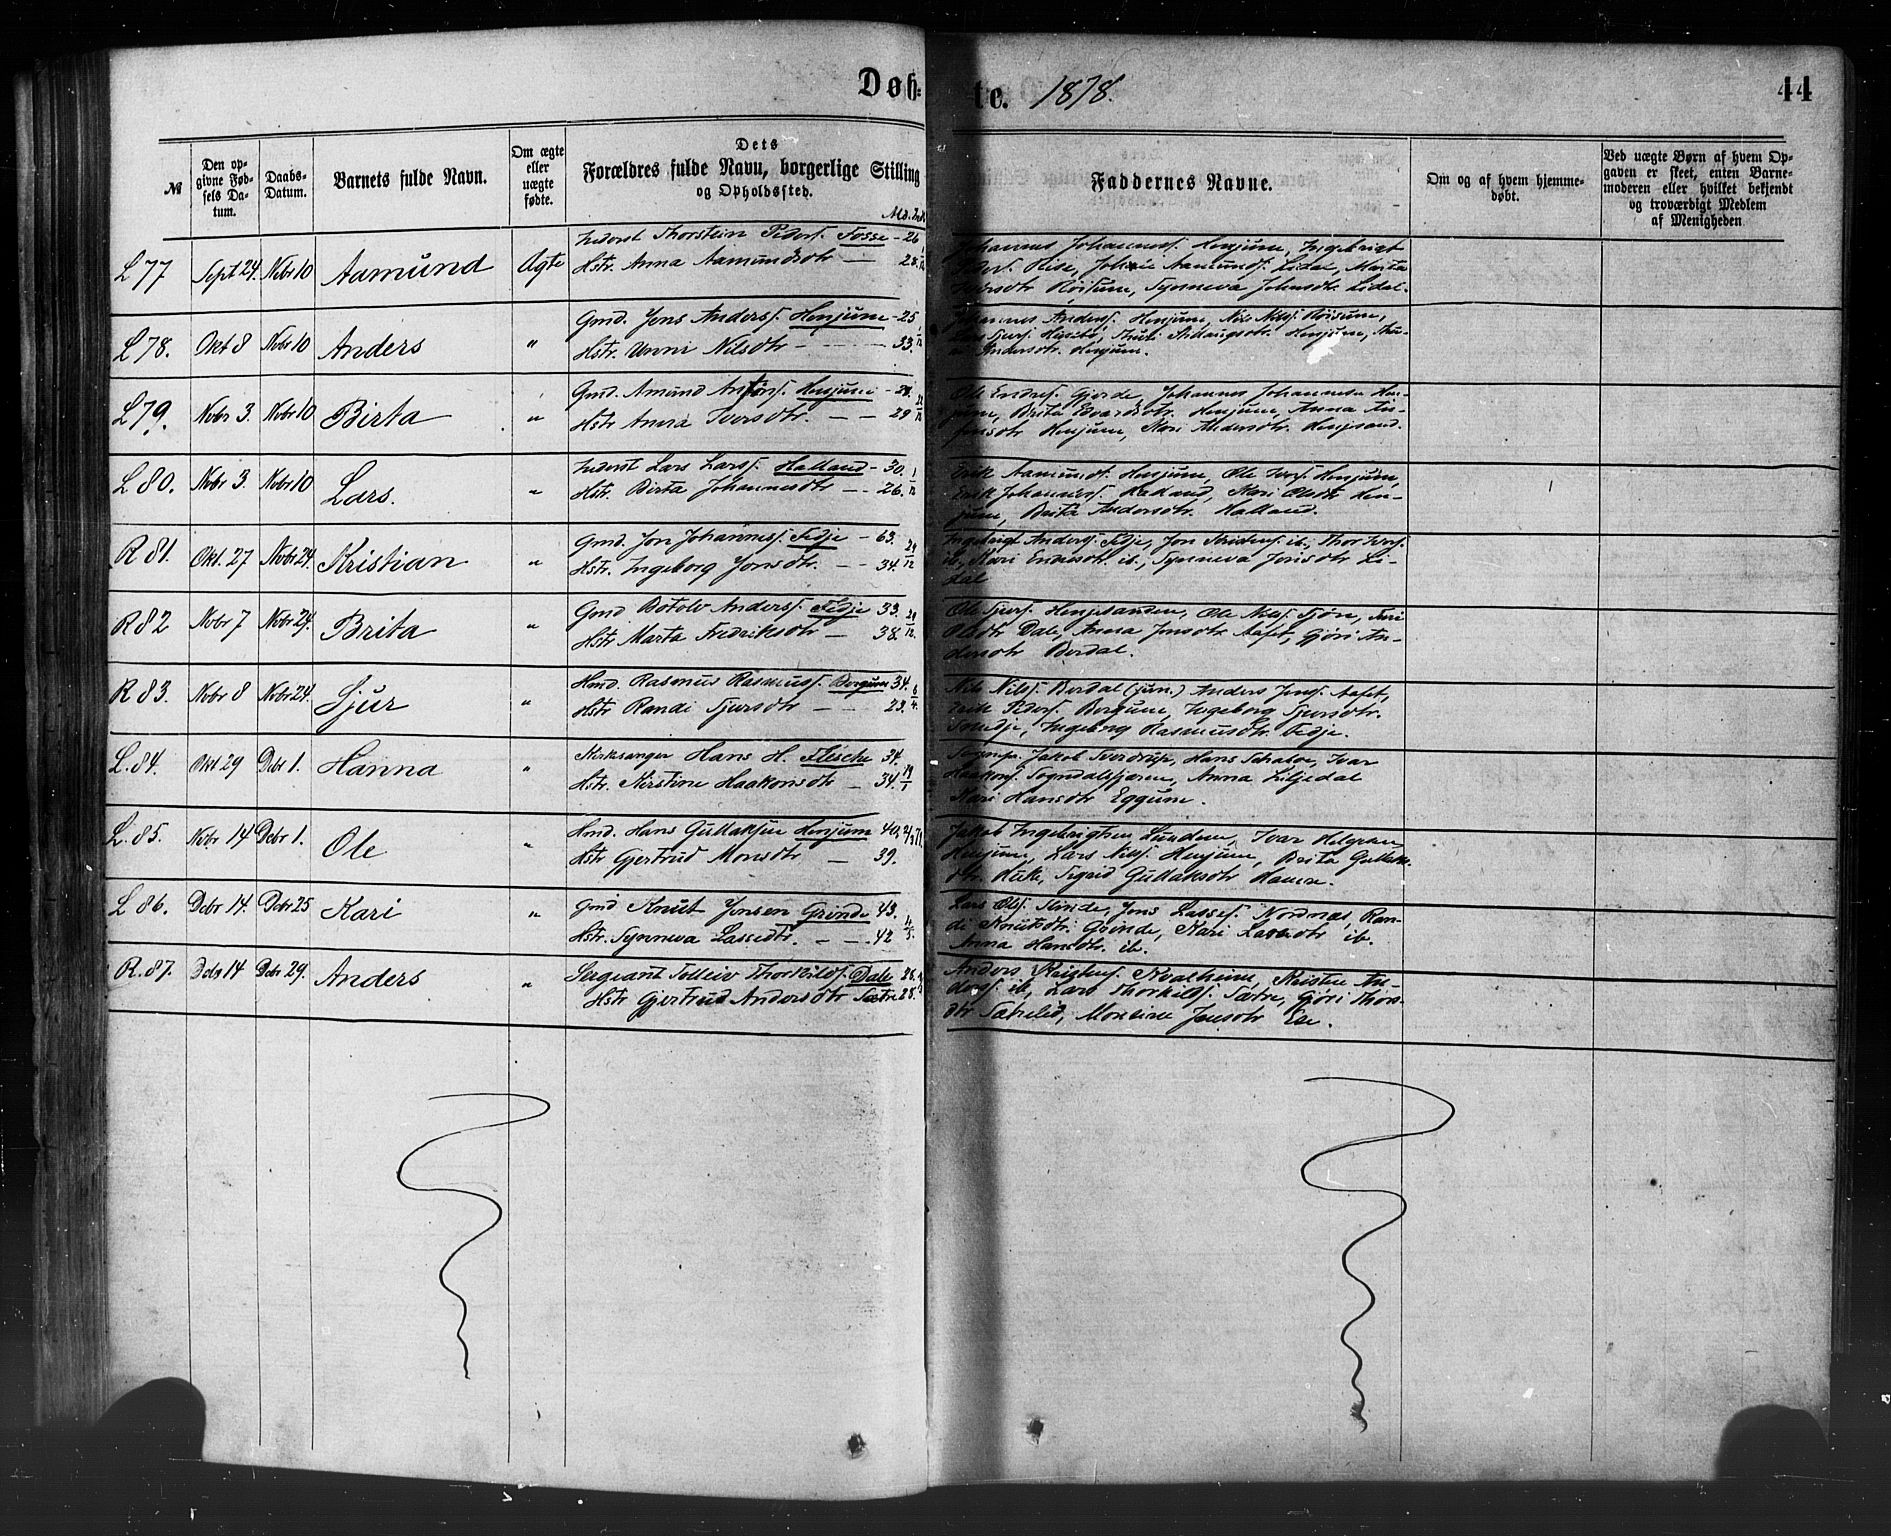 Døb-
te. 1878.
44
№
Den opgivne Fødsels Datum.
Daabs-Datum.
Barnets fulde Navn.
Om ægte eller uægte fødte.
Dets
Forældres fulde Navn, borgerlige Stilling
og Opholdssted.
Faddernes Navne.
Om og af hvem hjemmedøbt.
Ved uægte Børn af hvem Opgaven er skeet, enten Barnemoderen eller hvilket bekjendt og troværdigt Medlem af Menigheden
L 77 Sept 24. Nobr 10 Aamund Ægte
Inderst Thorstein Peders. Fosse - 26
Hstr. Anna Aamundsdtr — 28.
Johannes Johanness. Henjum, Ingebrigt
Aamunds. Lidal, Marta
Røisum, Synneva Johnsdtr. Lidal.
L 78. Okt 8 Nobr 10 Anders "
Gmd. Jons Anders. Henjum - 25
Hstr Unni Nilsdtr - 33.
Johannes Anders. Henjum, Nils Nilss. Røisum,
Henjum, An-
Andersdtr. Henjum.
L 79. Nobr 3. Nobr 10 Birta "
Gmd. Amund Henjum - 29.
Hstr Anna Iversdtr. — 29
Ole Endres. Gjerde, Johannes Johannesen Hen-
jum, Brita Henjum, Anna An-
Henjum, Kari Andersdtr. Hengsand.
L 80. Nobr 3. Nobr 10 Lars. "
Inderst Lars Larss. Halland - 30.
Hstr. Birta Johannesdtr — 26.
Erik Aamunds. Henjum, Ole Ivers. Henjum,
Erik Johanness. Halland, Kari Olsdtr Hen-
jum, Brita Andersdtr. Halland.
R 81. Okt. 27 Nobr 24. Kristian "
Gmd. Jon Johanness. Fedje - 63.
Hstr. Ingeborg Jonsdtr. — 34.
Ingebrigt Anders. Fedje, Jon ib., Thor Ivers.
ib., Kari Endresdtr. ib., Synneva Jonsdtr Li-
dal
R 82 Nobr 7 Nobr 24. Brita "
Gmd Botolv Anders. Fedje 33.
Hstr Marta Fredriksdtr — 38.
Ole Sjurs. Hengesanden, Ole Nilss.
Olsdtr Dale, Anna Jonsdtr Aafet, Gjøri An-
dersdtr Berdal.
R 83. Nobr 8 Nobr 24. Sjur "
Hmd. Rasmus Rasmuss. Borgum 34.
Hstr Randi Sjursdtr — 23.
Nils Nilss. Berdal (jun.) Anders Jons. Aafet,
Erik Peders. Borgum, Ingeborg Sjursdtr.
Ingeborg Rasmusdtr Fedje.
L. 84. Okt 29 Dcbr 1. Hanna "
Kirksanger Hans H. Flesche 34.
Hstr. Kirstine Haakonsdtr — 34.
Sognepr. Jakob Sverdrup, Hans Ivar
Haakons. Sogndalsfjæren, Anna Liljedal
Kari Hansdtr Eggum.
L. 85. Nobr 14 Dcbr 1. Ole "
Hmd. Hans Gullaksen Henjum 40,
Hstr Gjertrud Monsdtr — 39.
Jakob Ingebrigtsen Lunden, Ivar Helgesen
Henjum, Lars Nilss. Henjum, Brita Gullaks-
dtr. Huke, Sigrid Gullaksdtr Hamre.
L 86. Dcbr 14. Dcbr 25 Kari "
Gmd Knut Jensen Grinde 43.
Hstr. Synneva Lassedtr. — 42
Lars Ols. Jens Lasses. Nordnæs, Ran-
di Knutsdtr. Grinde, Kari Lassedtr ib.
Anna Hansdtr. ib.
R. 87. Dcbr 14 Dcbr 29. Anders "
Sergeant Tolleiv Thorkilds. Dale 28.
Hstr Gjertrud Andersdtr Sætre 28.
Anders Kvalheim, Kristen An-
derss. ib., Lars Thorkilds. Sætre, Gjøri Thors-
dtr Monsine Jensdtr Ese.